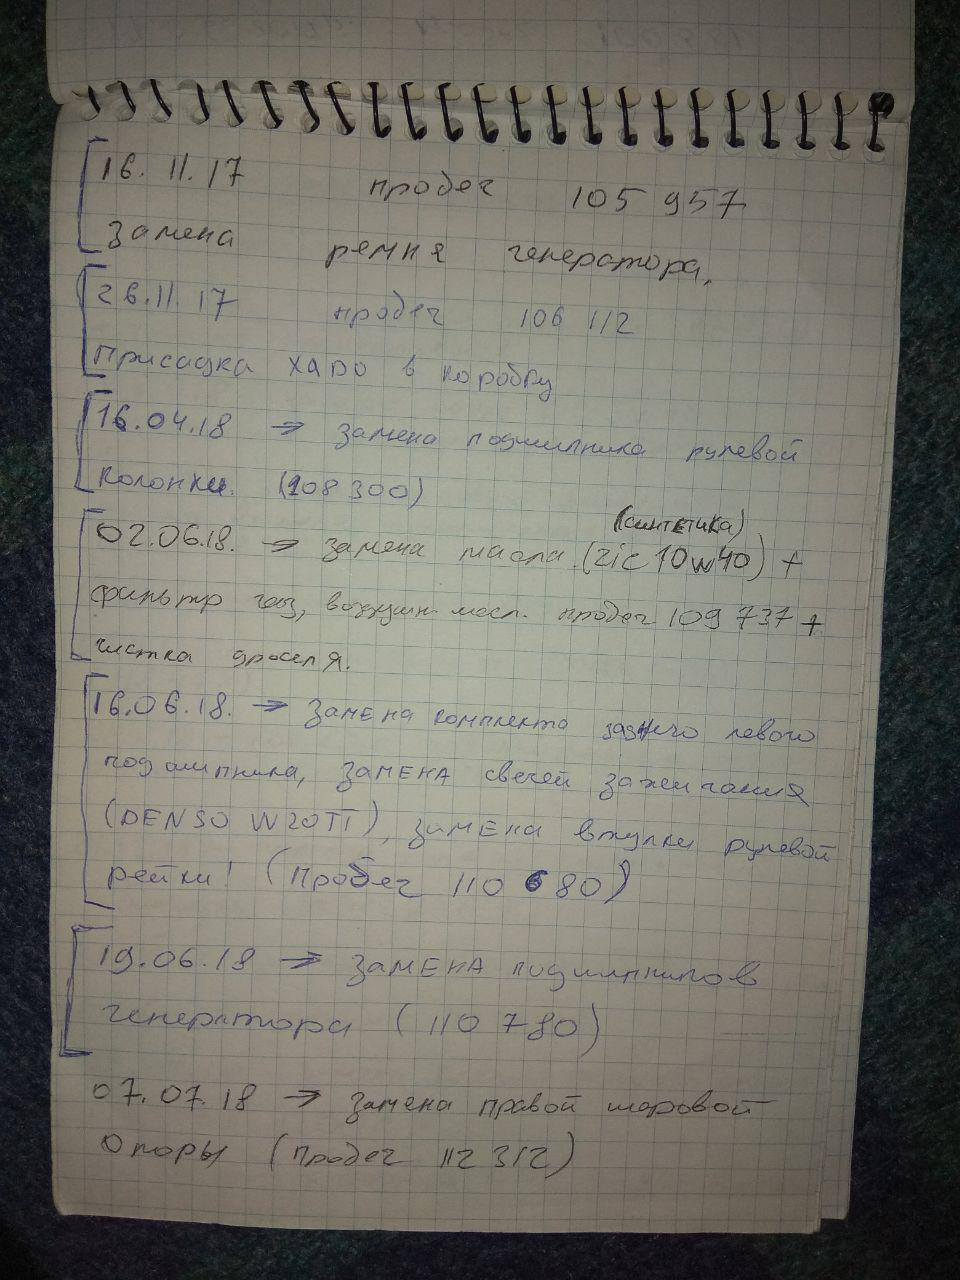 16.11.17 пробег 105 957
замена ремня генератора,
26.11.17 пробег 106 112
Присадка ХАDО в коробку
16.04.18 → замена подшипника рулевой
колонки. (108 300)
(синтетика)
02.06.18. → замена масла (zic 10w40) +
фильтр газ, воздушн. масл. пробег 109 737 +
чистка дроселя.
16.06.18. → Замена комплекта заднего левого
подшипника, ЗАМЕНА свечей зажигания
(DENSO W20TT), замена втулки рулевой
рейки! (Пробег 110 680)
19.06.18 → ЗАМЕНА подшипников
генератора (110 780)
07.07.18 → замена правой шаровой
опоры (Пробег 112 312)